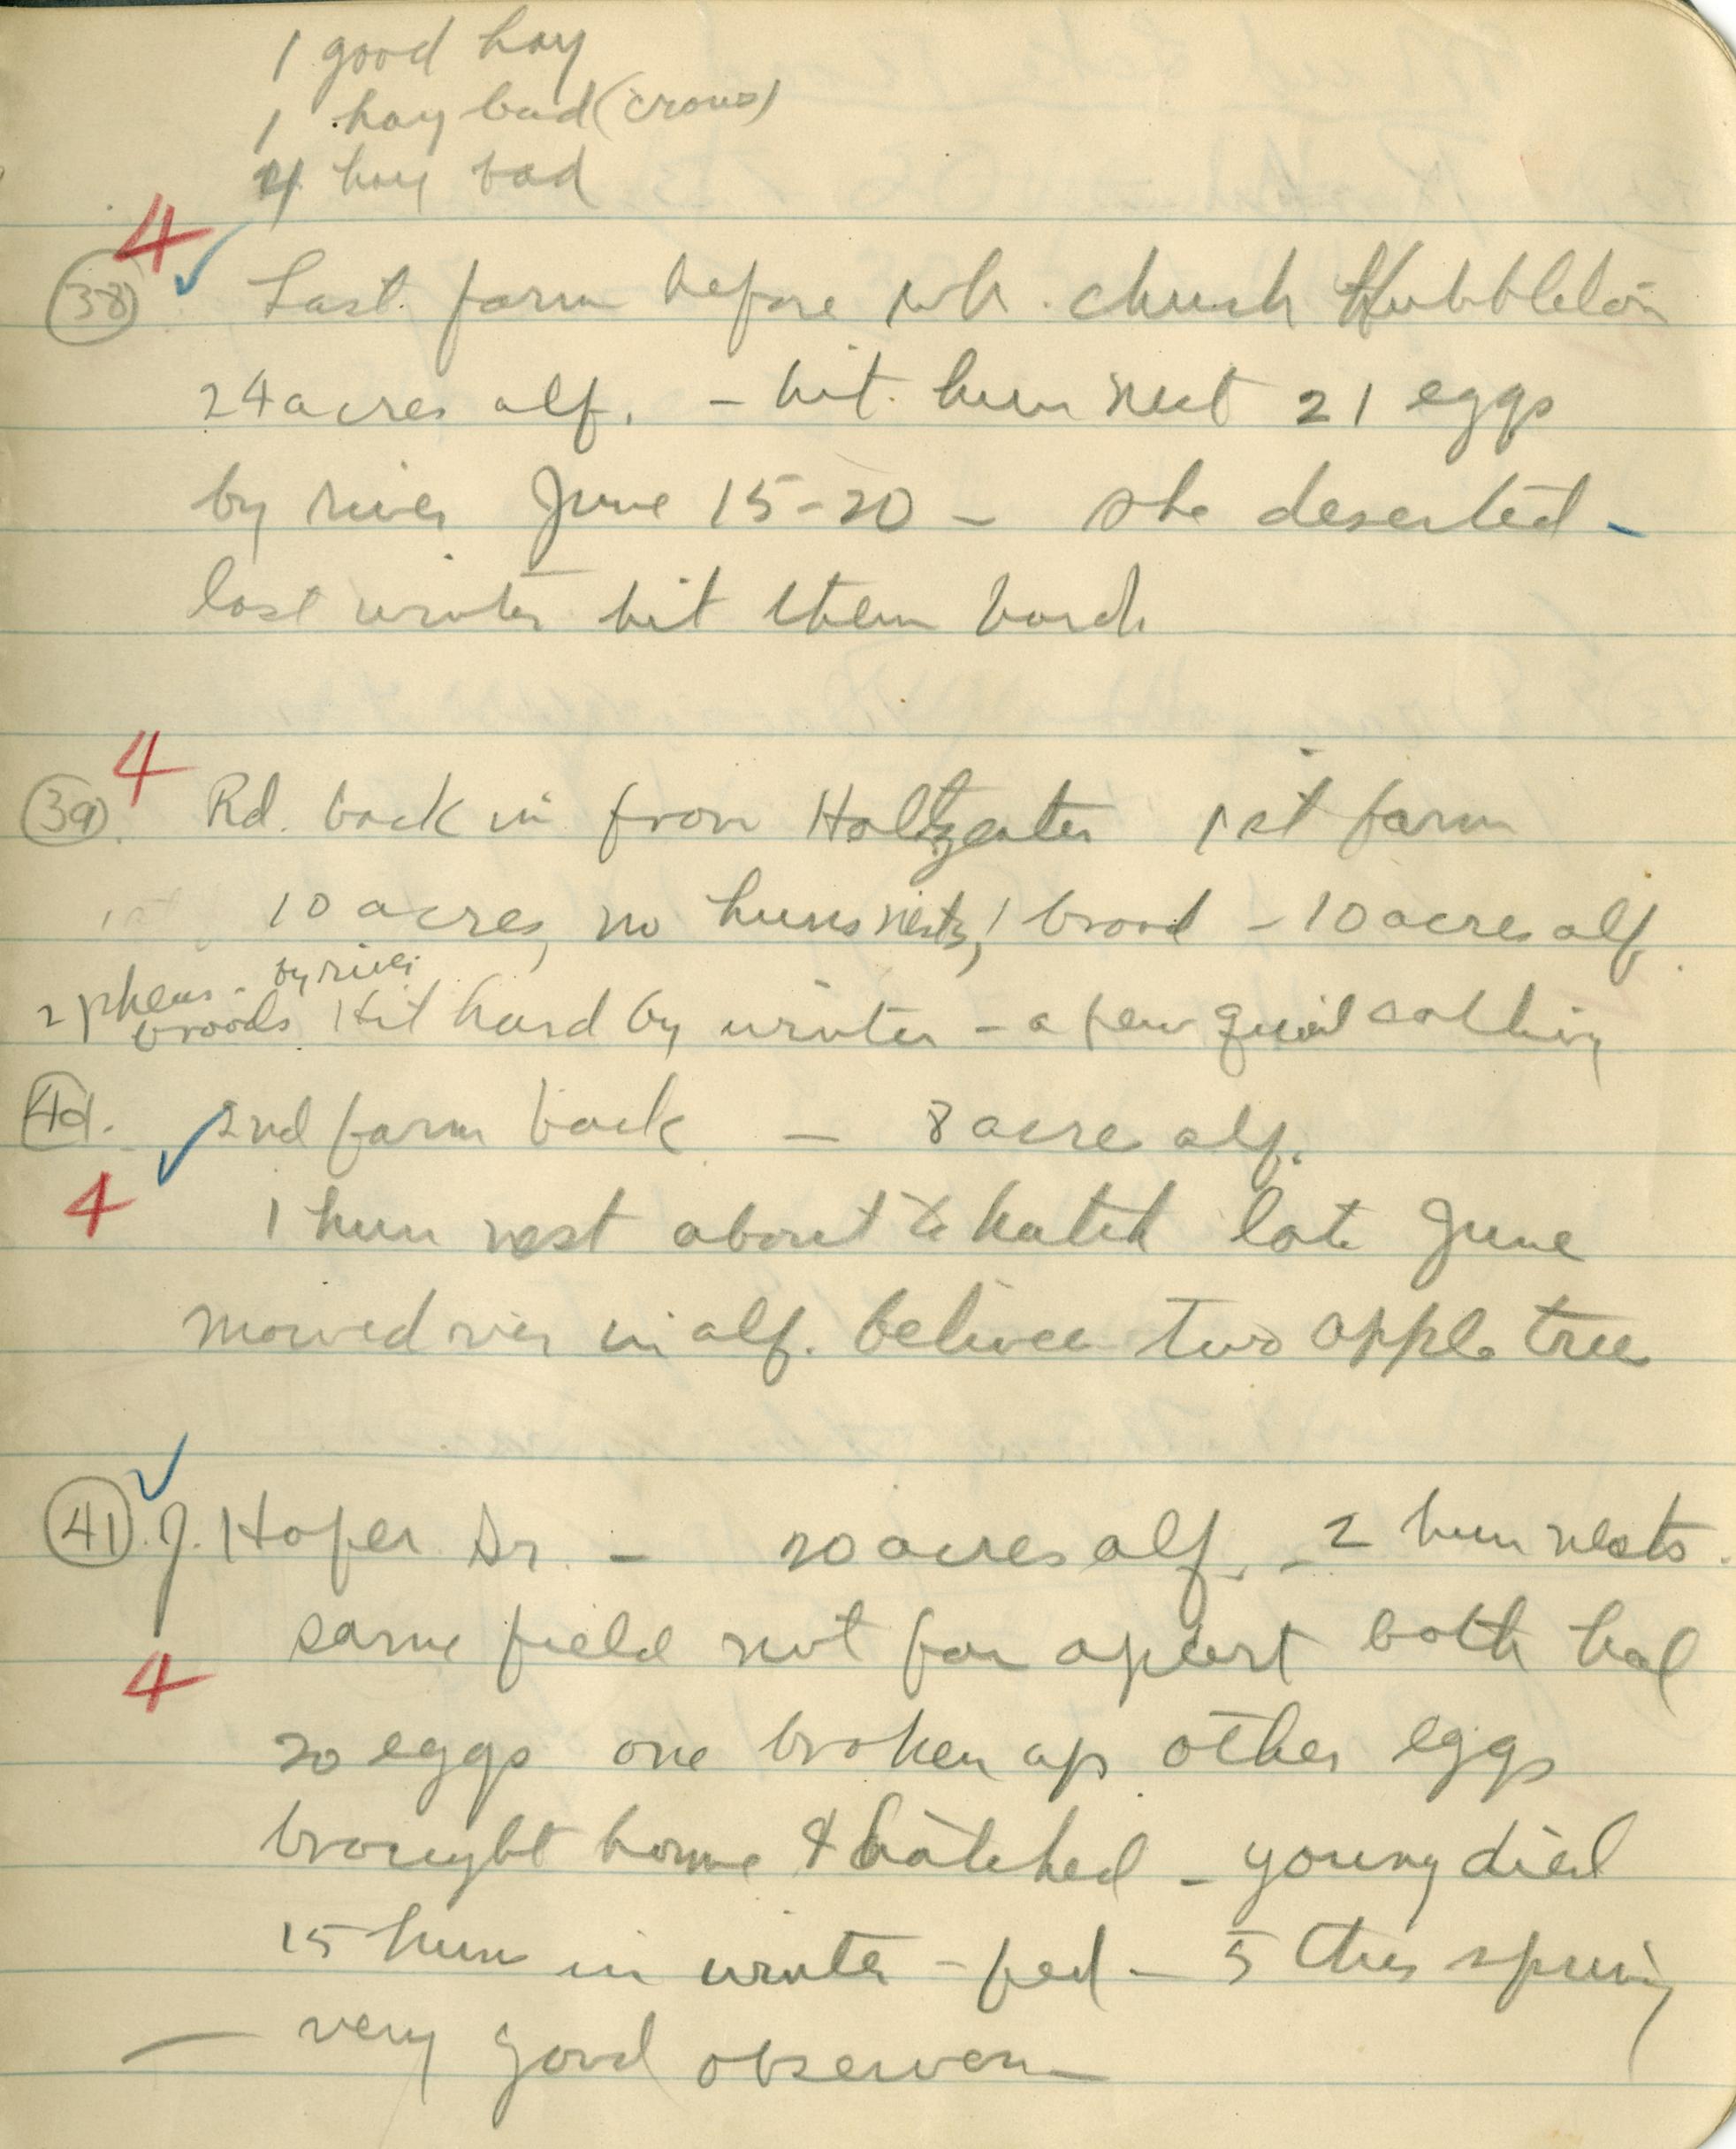 1 good hay
1 hay bad (crows)
4 hay bad
4
(38) Last farm before wh. church Hubbleton
24 acres alf. - hit hun nest 21 eggs
by river June 15-20 - she deserted -
last winter hit them hard
4
(39). Rd. back in from 1st farm
10 acres, no huns nests, 1 brood - 10 acres alf.
2 pheas. - by river
broods Hit hard by winter - a few quail calling
(40). 2nd farm back - 8 acres alf.
4
1 hun nest about to hatch late June
mowed over in alf. between two apple trees
(41). J. Hofer Sr. - 20 acres alf. - 2 hun nests.
same field not far apart both had
4
20 eggs one broken up other eggs
brought home & hatched - young died
15 huns in winter - fed - 5 this spring
— very good observer —